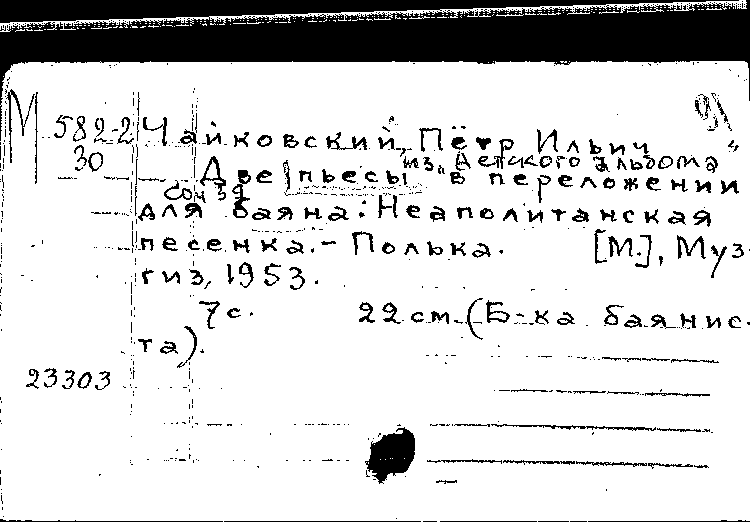 М 582-2
30
91
Чайковский, Пётр Ильич
из „Детского альбома"
Две пьесы в переложении
соч 39
для баяна: Неаполитанская
песенка. - Полька. [М.], Муз-
гиз, 1953.
7 с. 22 см. (Б-ка баянис-
та).
23303